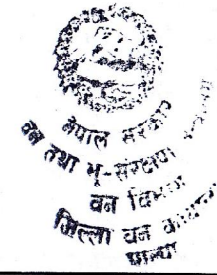 नेपाल सरकार
वन तथा भू-संरक्षण
वन विभाग
जिल्ला वन कार्यालय
पाल्पा